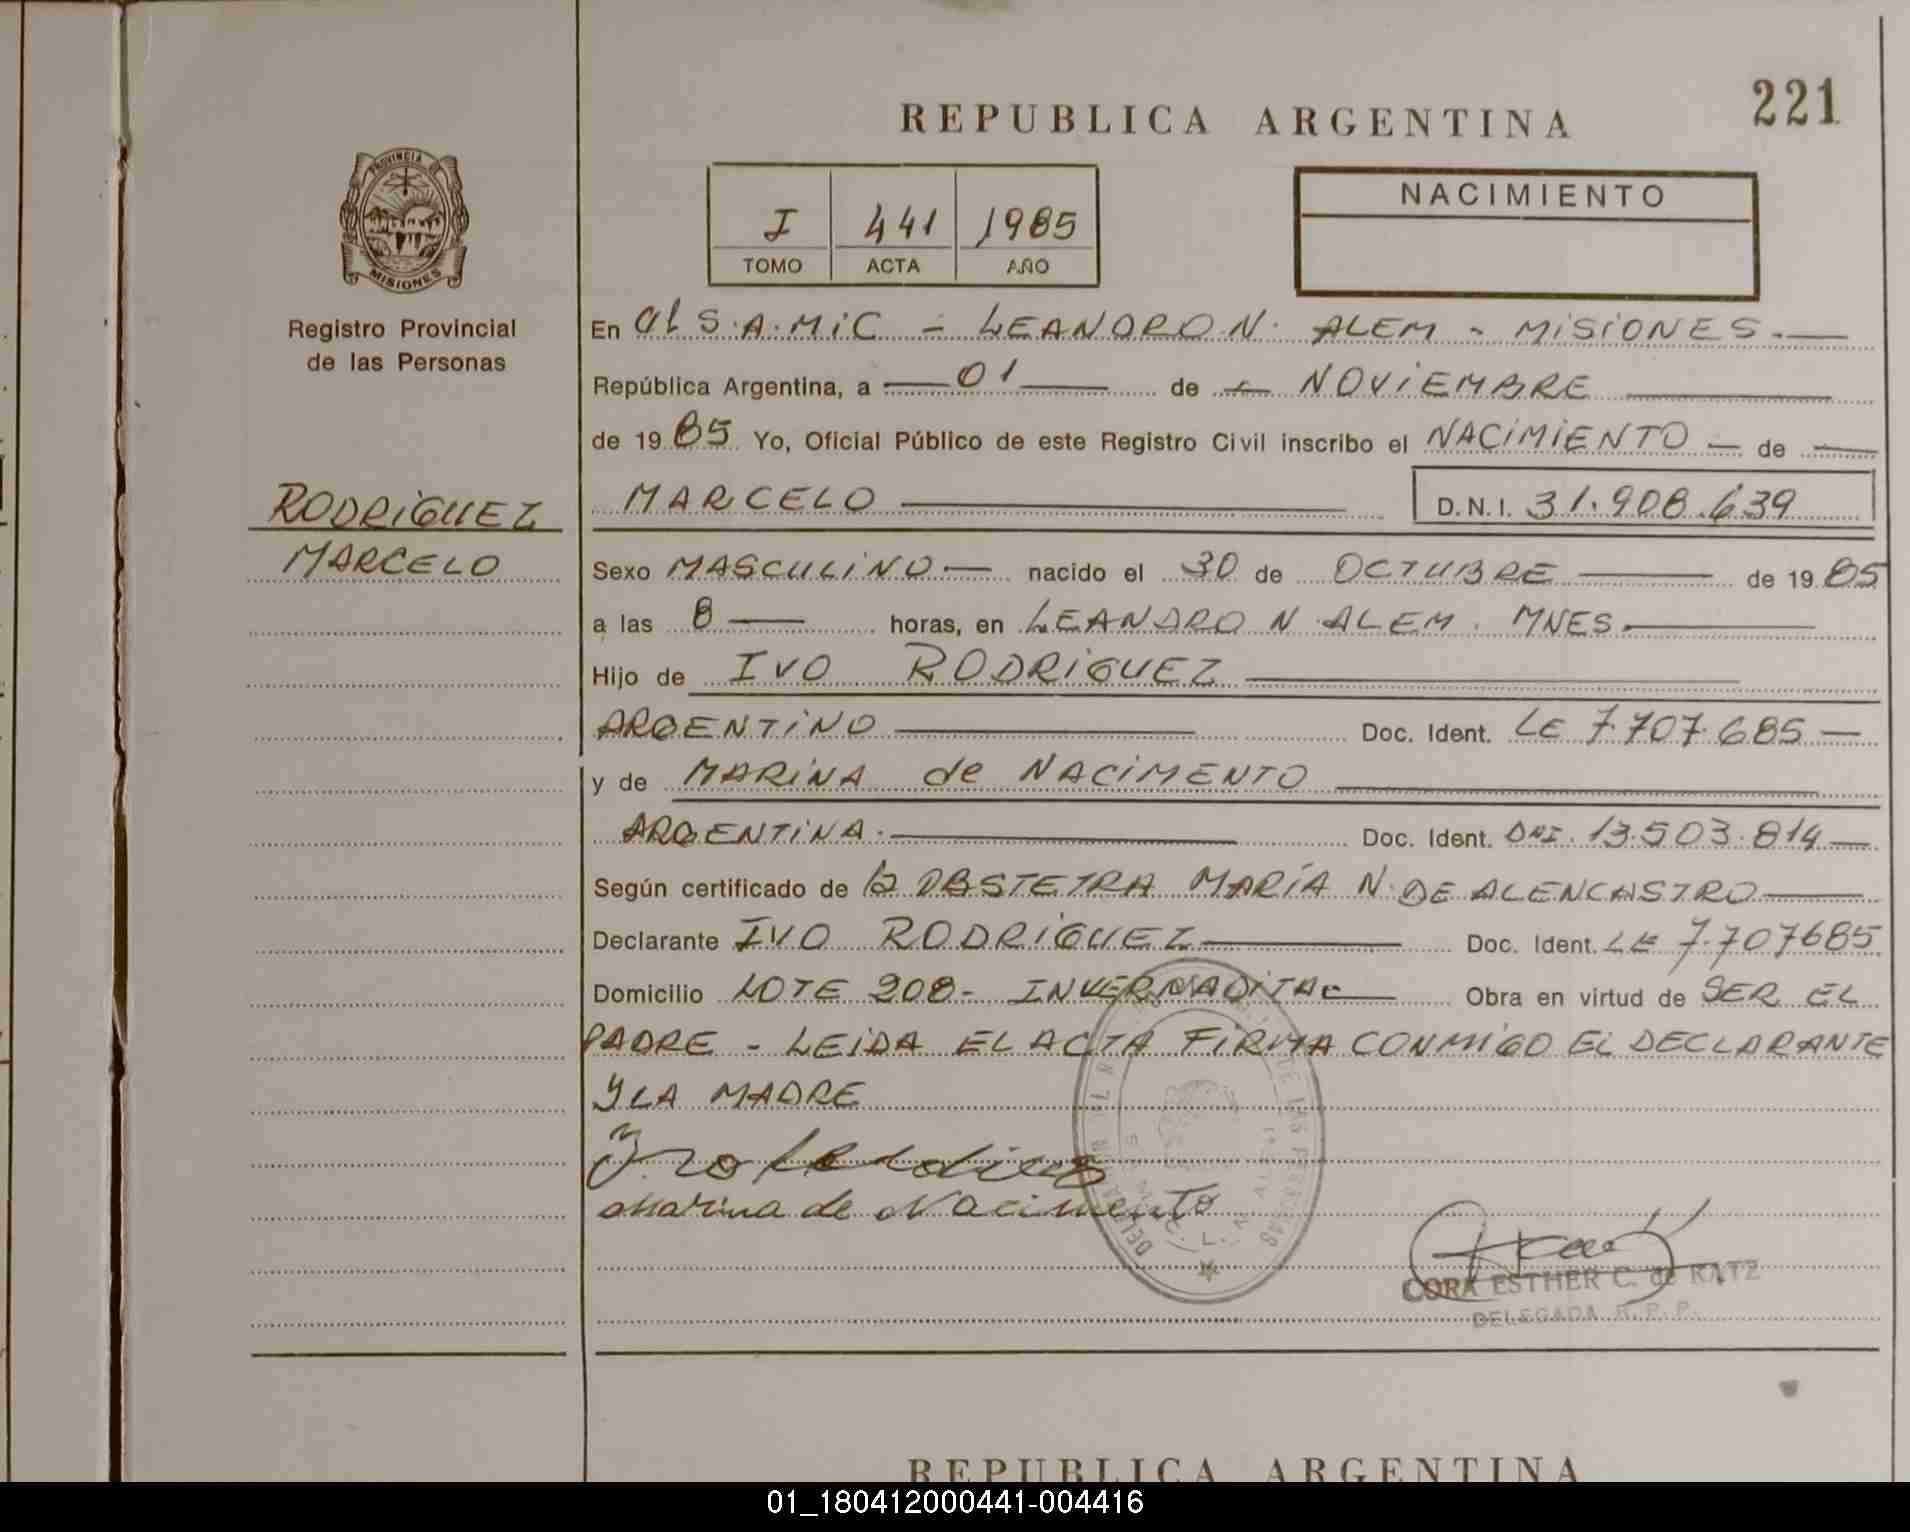 221
REPUBLICA ARGENTINA
PROVINCIA
MISIONES
Registro Provincial
de las Personas
I 441 1985
TOMO ACTA AÑO
NACIMIENTO
En al S.A.MiC - LEANDRO N. ALEM - MISIONES.
República Argentina, a 01 de NOVIEMBRE
de 19 85 Yo, Oficial Público de este Registro Civil inscribo el NACIMIENTO de
RODRIGUEZ
MARCELO
MARCELO D.N.I. 31.908.639
Sexo MASCULINO nacido el 30 de OCTUBRE de 19 85
a las 8 horas, en LEANDRO N ALEM. MNES.
Hijo de IVO RODRIGUEZ
ARGENTINO Doc. Ident. LE 7.707.685
y de MARINA de NACIMENTO
ARGENTINA. Doc. Ident. DNI. 13.503.814
Según certificado de la OBSTETRA MARÍA N. DE ALENCASTRO
Declarante IVO RODRIGUEZ Doc. Ident. LE 7.707685
Domicilio LOTE 208- INVERNADITA Obra en virtud de SER EL
PADRE - LEIDA EL ACTA FIRMA CONMIGO El DECLARANTE
Y LA MADRE
Marina de Nacimento
CORA ESTHER C. de KATZ
DELEGADA R. P. P.
REPUBLICA ARGENTINA
01_180412000441-004416